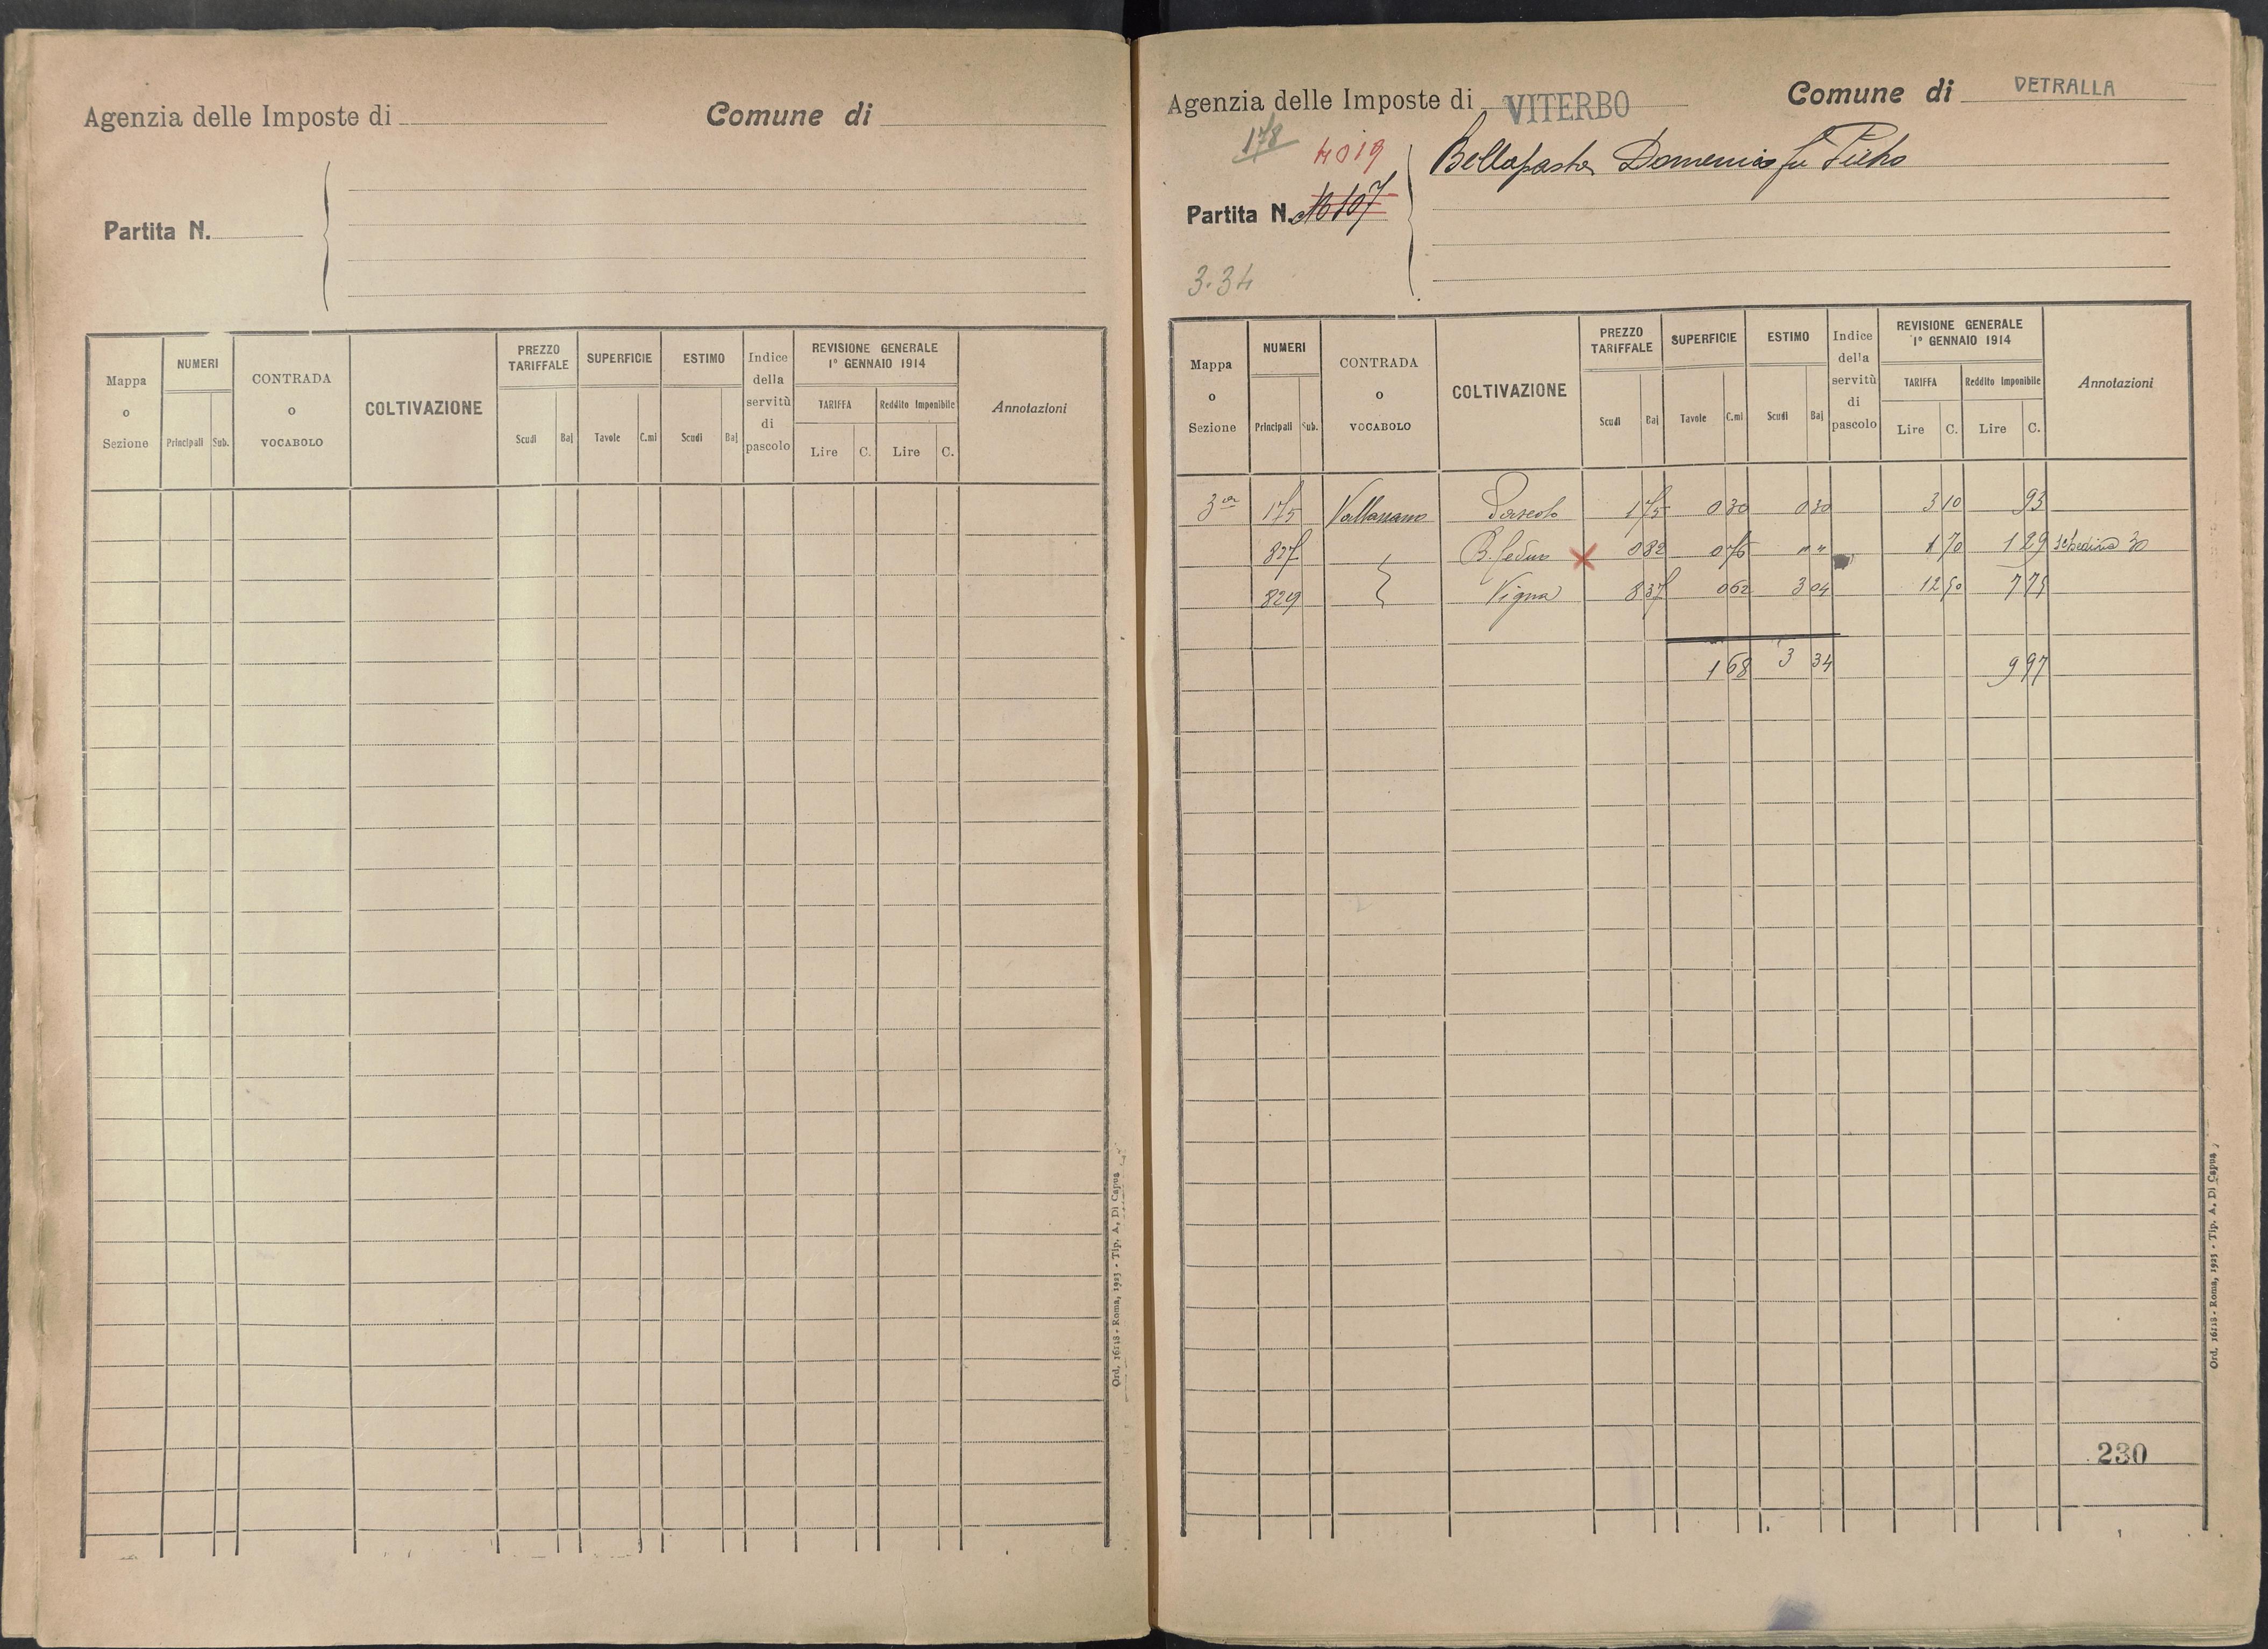 Agenzia delle Imposte di
Comune di
Partita N.
Mappa o Sezione
NUMERI
Principali Sub.
CONTRADA o VOCABOLO
COLTIVAZIONE
PREZZO TARIFFALE
Scudi Baj
SUPERFICIE
Tavole C.mi
ESTIMO
Scudi Baj
Indice della servitù di pascolo
REVISIONE GENERALE 1° GENNAIO 1914
TARIFFA Reddito Imponibile
Lire C. Lire C.
Annotazioni
Ord. 16118 - Roma, 1923 - Tip. A. Di Capua
Agenzia delle Imposte di VITERBO
Comune di VETRALLA
178 4019
Domenico fu
Partita N. 107
3.34
Mappa o Sezione
NUMERI
Principali Sub.
CONTRADA o VOCABOLO
COLTIVAZIONE
PREZZO TARIFFALE
Scudi Baj
SUPERFICIE
Tavole C.mi
ESTIMO
Scudi Baj
Indice della servitù di pascolo
REVISIONE GENERALE 1° GENNAIO 1914
TARIFFA Reddito Imponibile
Lire C. Lire C.
Annotazioni
3a 175 Pascolo 1 75 0 30 0 30 3 10 93
827 B. Ceduo 0 82 0 76 " " 1 70 1 29 Schedina 30
829 Vigna 8 37 0 62 3 04 12 50 7 75
1 68 3 34 9 97
230
Ord. 16118 - Roma, 1923 - Tip. A. Di Capua